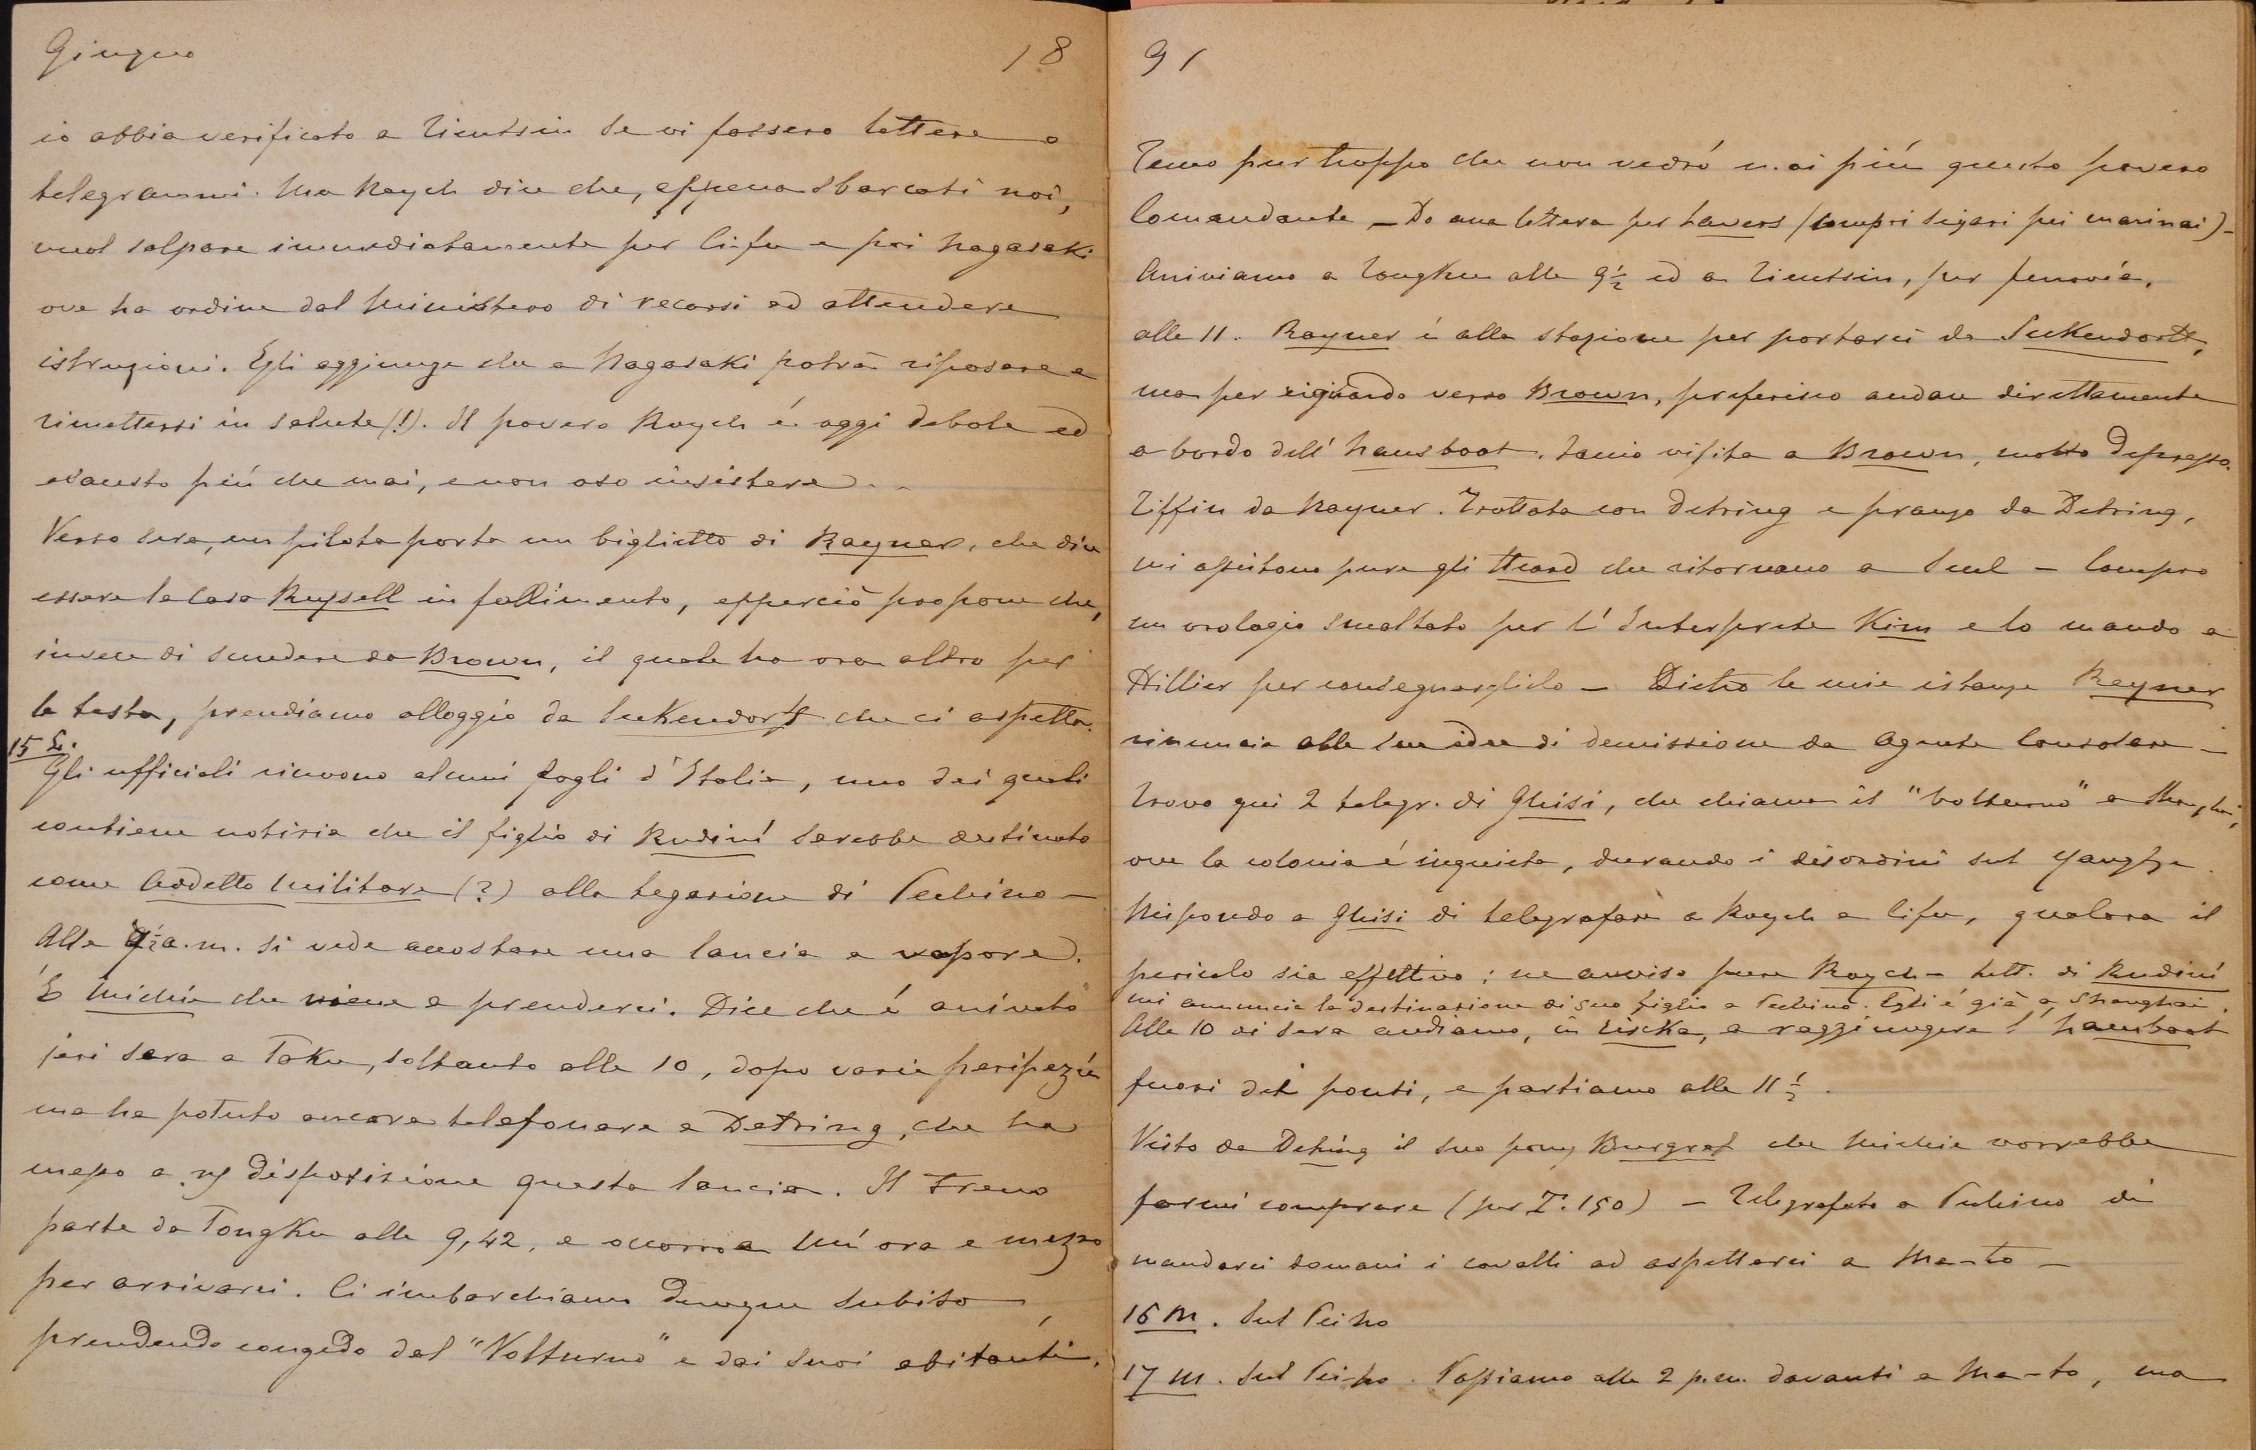 Giugno 18
io abbia verificato a Tientsin se vi fossero lettere o
telegrammi. Ma Raych dice che, appena sbarcati noi,
vuol salpare immediatamente per Cifu e poi Nagasaki
ove ha ordine dal Ministero di recarsi ed attendere
istruzioni. Egli aggiunge che a Nagasaki potrà riposare e
rimettersi in salute (!). Il povero Raych é oggi debole ed
esausto piú che mai, e non oso insistere -
Verso sera, un pilota porta un biglietto di Rayner, che dice
essere la Casa Russell in fallimento, epperciò propone che,
invece di scendere da Brown, il quale ha ora altro per
la testa, prendiamo alloggio da Sukendorff che ci aspetta.
15 L.
Gli ufficiali ricevono alcuni fogli d'Italia, uno dei quali
contiene notizia che il figlio di Rudiní sarebbe destinato
come Addetto Militare (?) alla Legazione di Pechino -
Alle ½ a.m. si vede accostare una lancia a vapore.
É Michie che viene a prenderci. Dice che é arrivato
jeri sera a Taku, soltanto alle 10, dopo varie peripezíe
ma ha potuto ancora telefonare a Detring, che ha
messo a ns disposizione questa lancia. Il treno
parte da TongKu alle 9,42, e occorre un'ora e mezzo
per arrivarci. Ci imbarchiamo dunque subito,
prendendo congedo dal "Volturno" e dai suoi abitanti.
91
Temo pur troppo che non vedró mai piú questo povero
Comandante - Do una lettera per Lavers (compri sigari pei marinai) -
Arriviamo a Tongku alle 9½ ed a Tientsin, per ferrovía,
alle 11. Rayner é alla stazione per portarci da Sukendorff,
ma per riguardo verso Brown, preferisco andare direttamente
a bordo dell' hausboat. Faccio visita a Brown, molto depresso.
Tiffin da Rayner. Trottata con Detring e pranzo da Detring,
mi assistono pure gli Heard che ritornano a Seul - Compro
un orologio smaltato per l'Interprete Kim e lo mando a
Hillier per consegnarglielo - Dietro le mie istanze Rayner
rinuncia alle sue idee di demissione da Agente Consolare -
Trovo qui 2 telegr. di Ghisi, che chiama il "Volturno" a Shanghai,
ove la colonia é inquieta, durando i disordini sul Yangtze.
Rispondo a Ghisi di telegrafare a Raych a Cifu, qualora il
pericolo sia effettivo; ne avviso pure Raych - Lett. di Rudiní
mi annuncia la destinazione di suo figlio a Pechino. Egli é già a Shanghai.
Alle 10 di sera andiamo, in risika, a raggiungere l' hausboat
fuori dei ponti, e partiamo alle 11½.
Visto da Detring il suo pony Burgraf che Michie vorrebbe
farmi comprare (per T. 150) - Telegrafato a Pechino di
mandarci domani i cavalli ad aspettarci a Ma-to -
16 M. Sul Peiho
17 M. Sul Pei-ho. Passiamo alle 2 p.m. davanti a Ma-to, ma